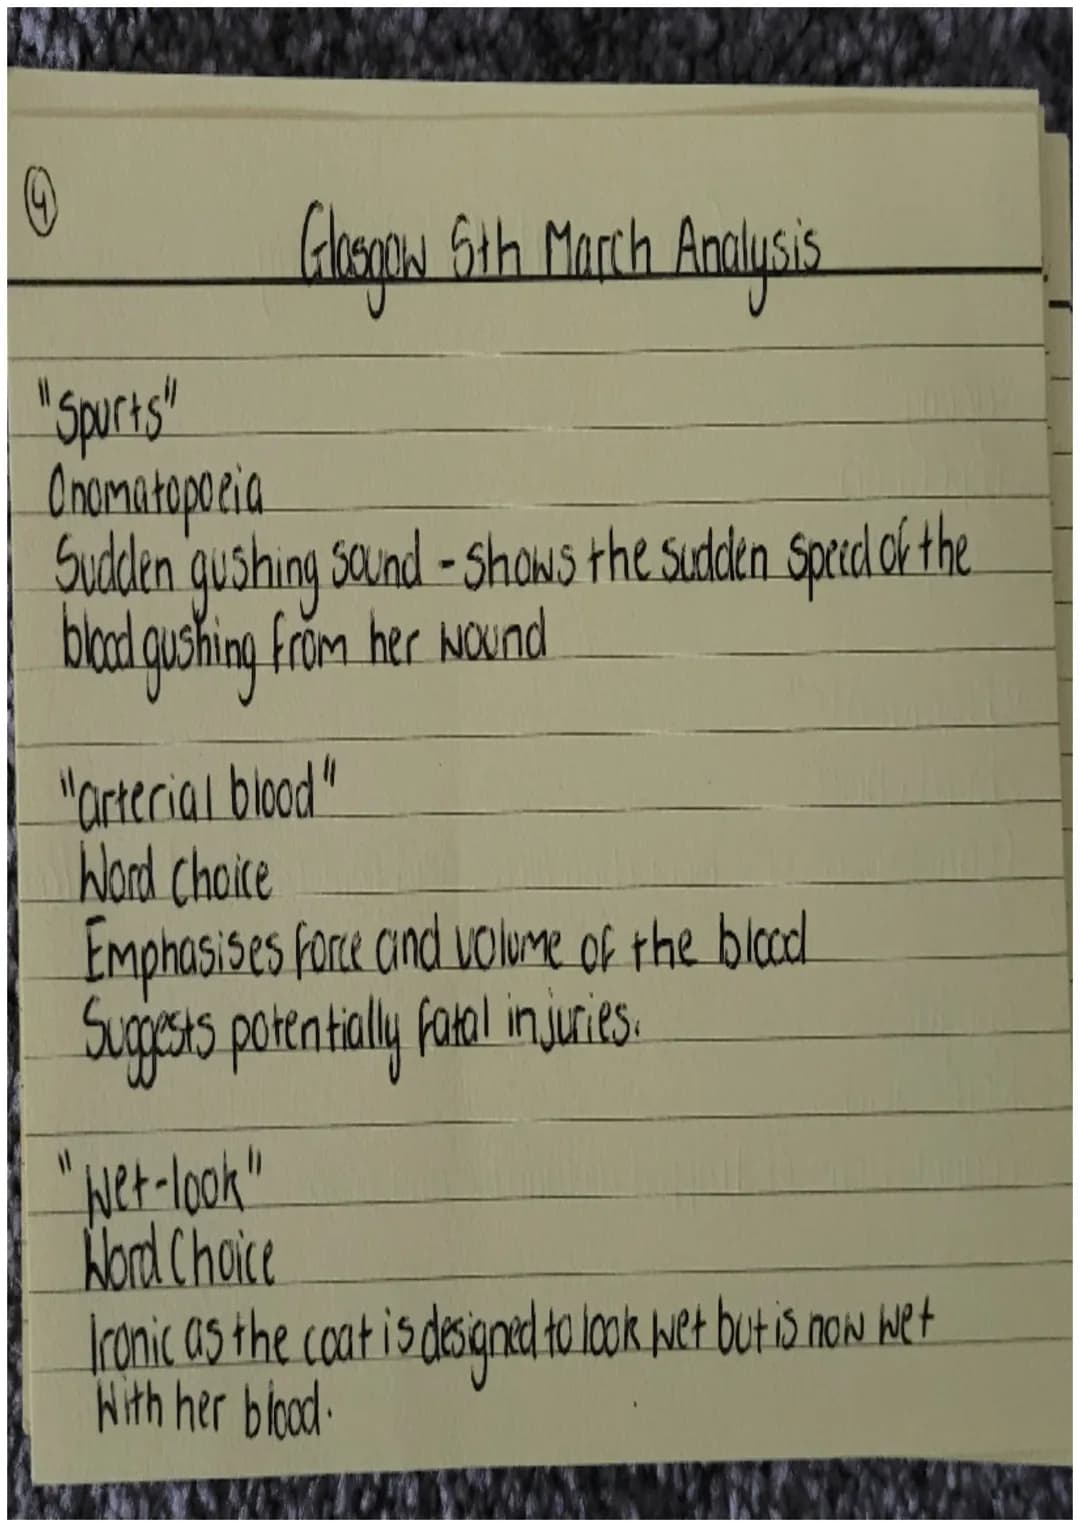 4
Glasgow 5th March Analysis
"Spurts"
Onomatopoeia
Sudden gushing sound - shows the sudden speed of the
blood gushing from her wound
"arterial blood"
Word choice
Emphasises force and volume of the blood
Suggests potentially fatal injuries.
"Wet-look"
Word Choice
Ironic as the coat is designed to look wet but is now wet
With her blood.